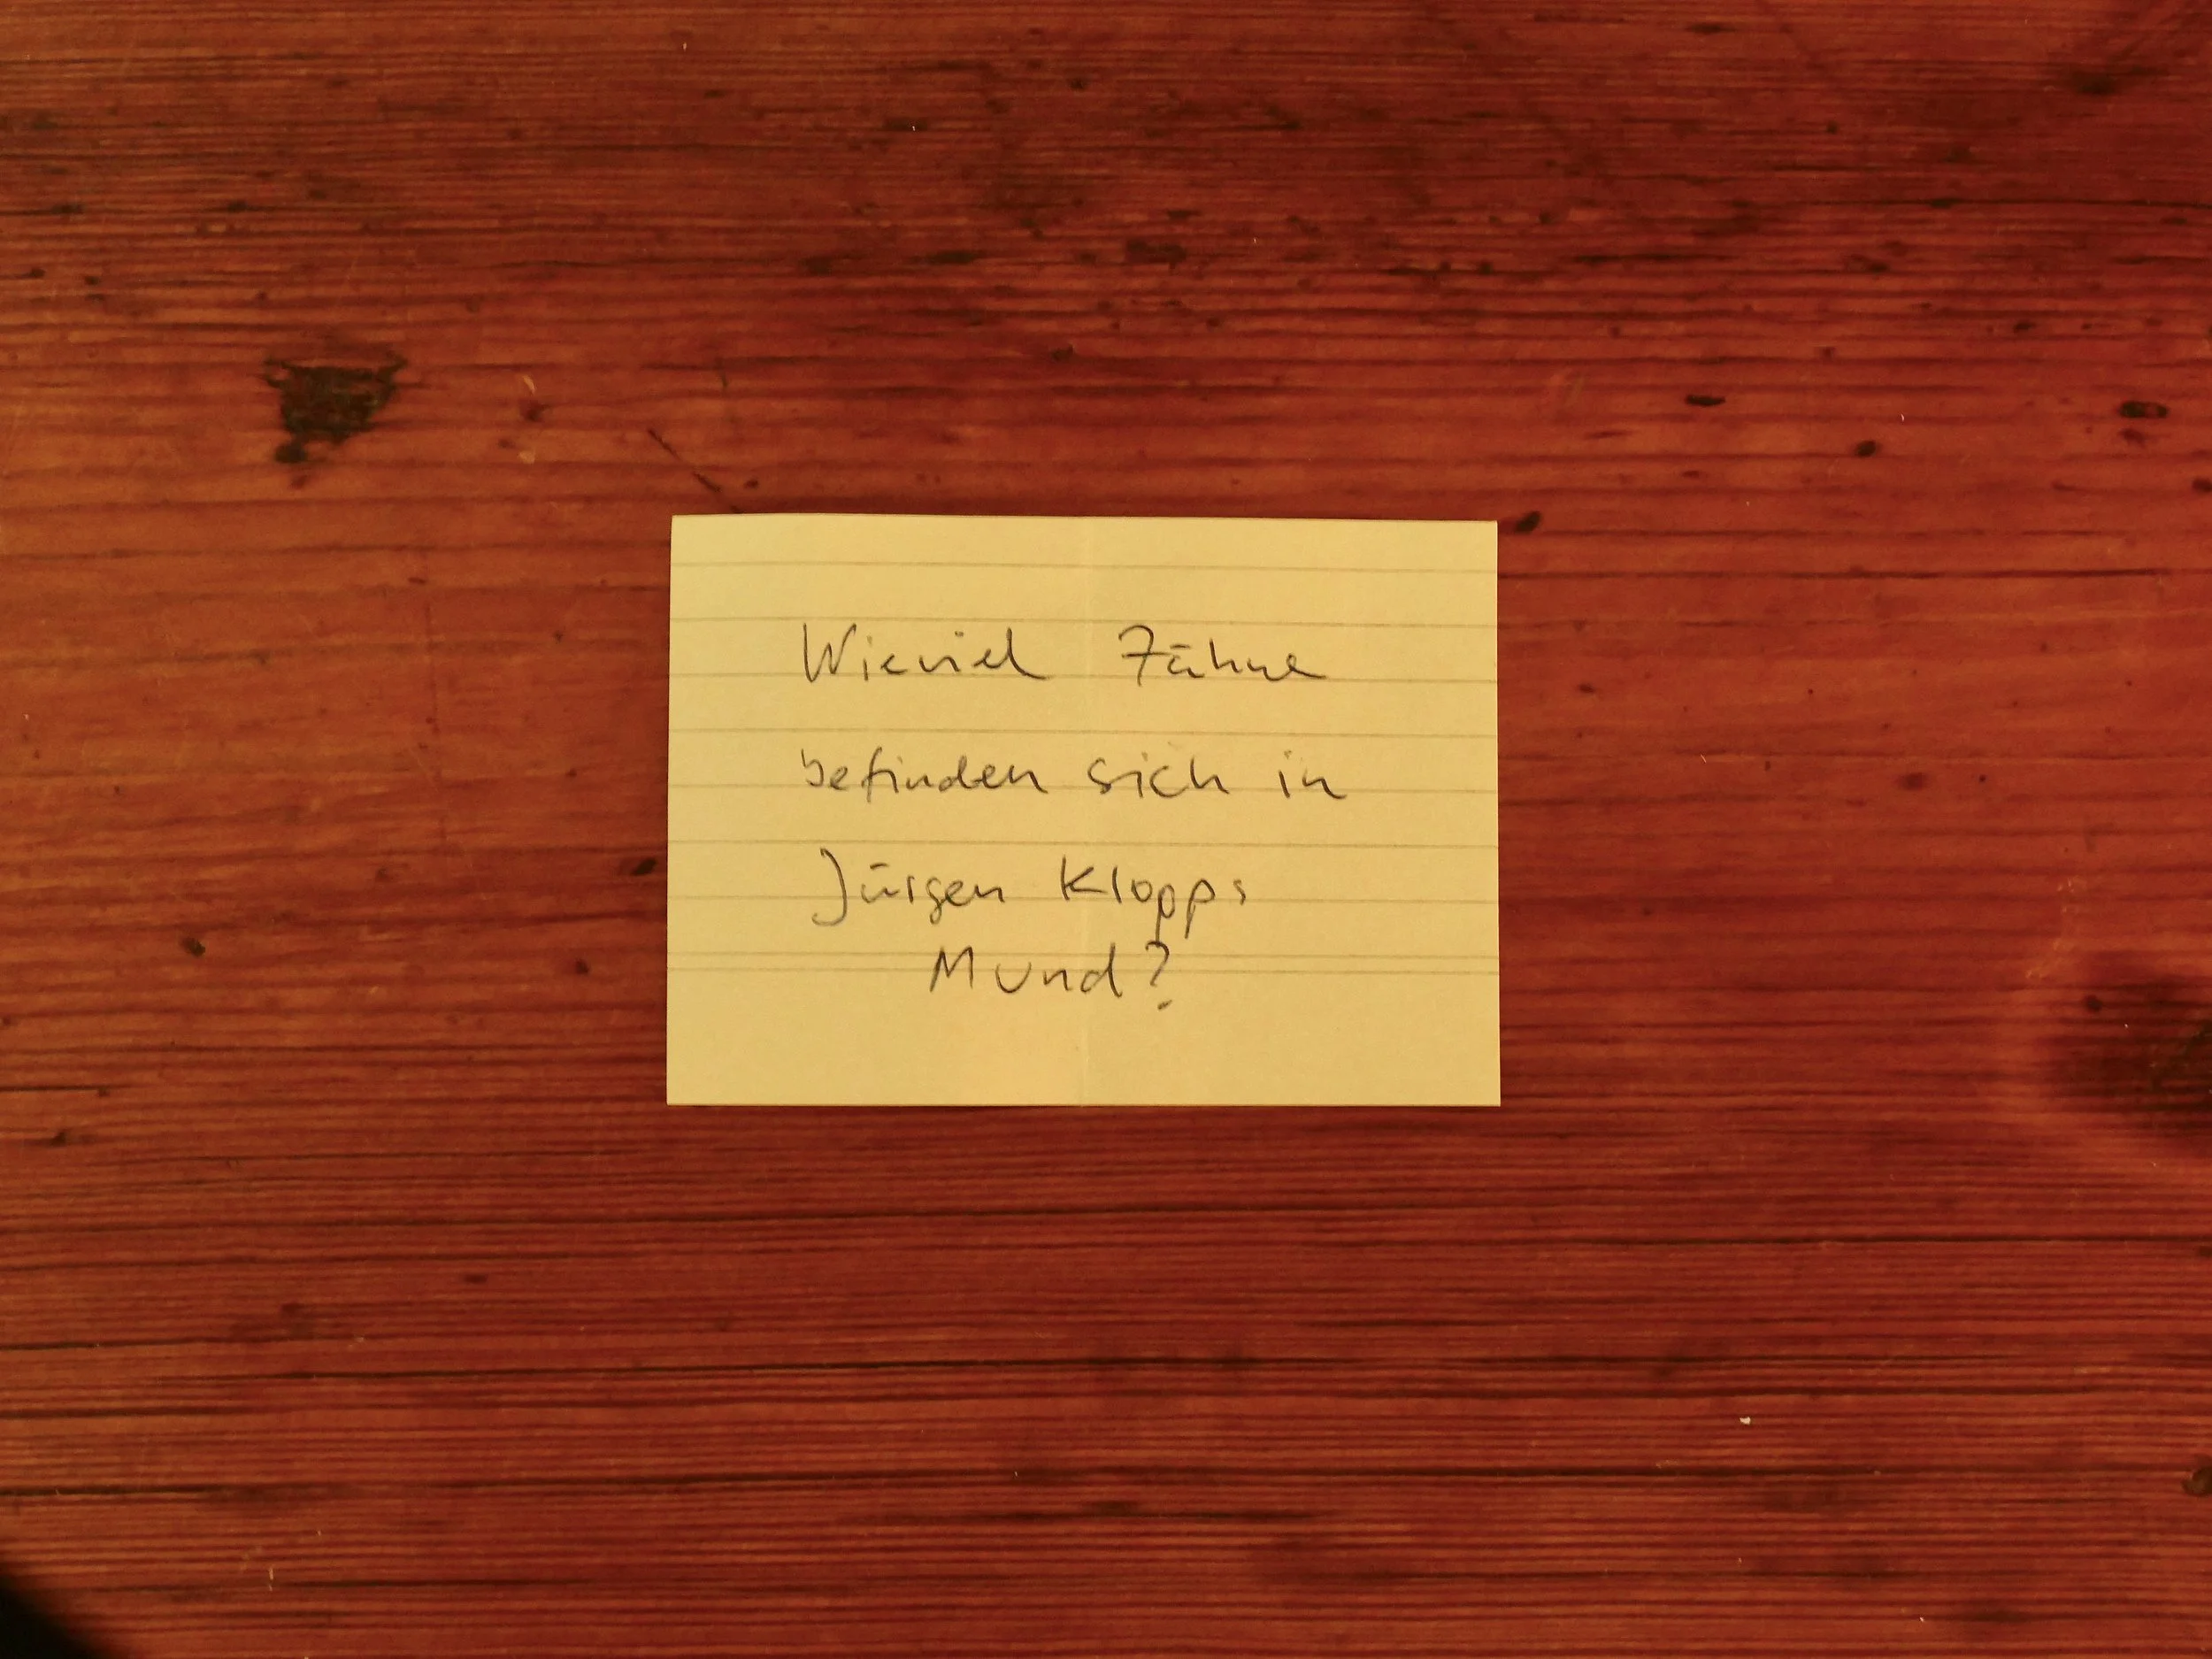 Wieviel Zähne
befinden sich in
Jürgen Klopps
Mund?